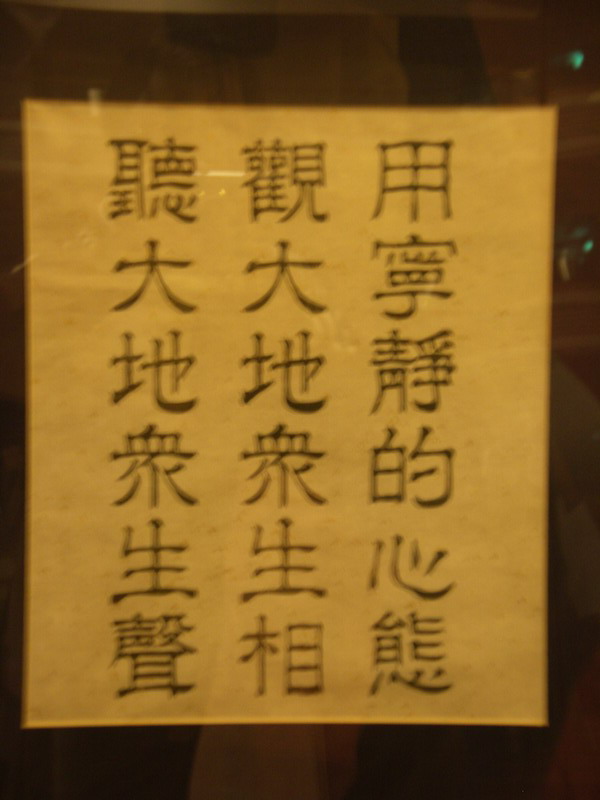 用寧靜的心態
觀大地眾生相
聽大地眾生聲